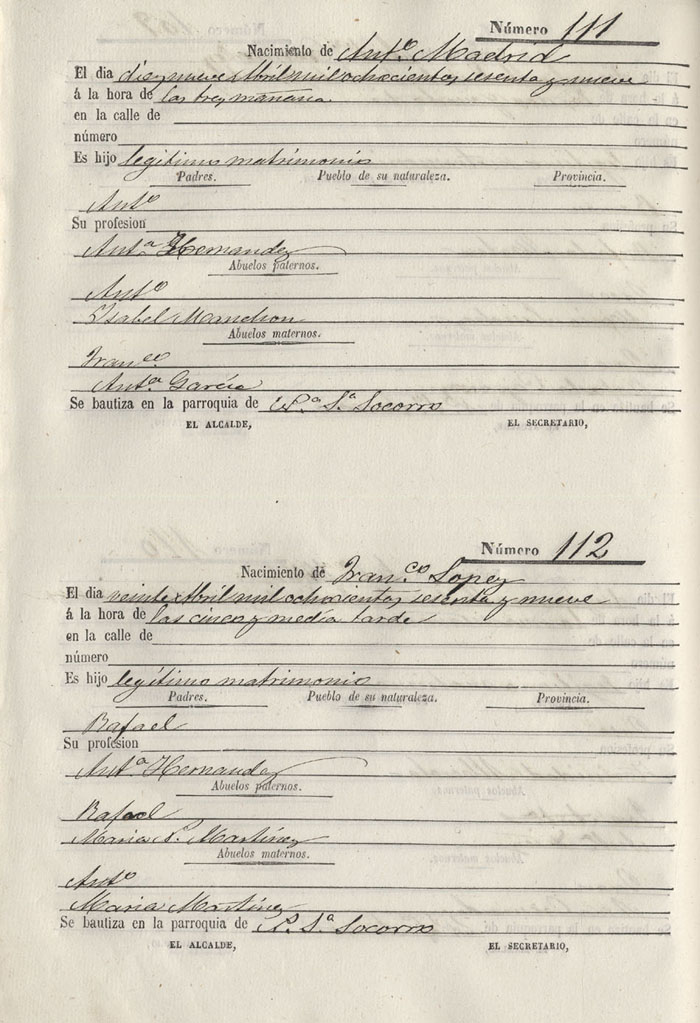 Número 111
Nacimiento de Antº Madrid
El dia diez y nueve Abril mil ochocientos sesenta y nueve
á la hora de las tres mañana.
en la calle de
número
Es hijo legitimo matrimonio
Padres. Pueblo de su naturaleza. Provincia.
Antº
Su profesion
Antª Hernandez
Abuelos paternos.
Antº
Ysabel Manchon
Abuelos maternos.
Franco
Antª Garcia
Se bautiza en la parroquia de Sª Socorro
EL ALCALDE, EL SECRETARIO,
Número 112
Nacimiento de Franco Lopez
El dia veinte Abril mil ochocientos sesenta y nueve
á la hora de las cinco y media tarde
en la calle de
número
Es hijo legítimo matrimonio
Padres. Pueblo de su naturaleza. Provincia.
Rafael
Su profesion
Antª Hernandez
Abuelos paternos.
Rafael
Maria Martinez
Abuelos maternos.
Antº
Maria Martinez
Se bautiza en la parroquia de Sª Socorro
EL ALCALDE, EL SECRETARIO,